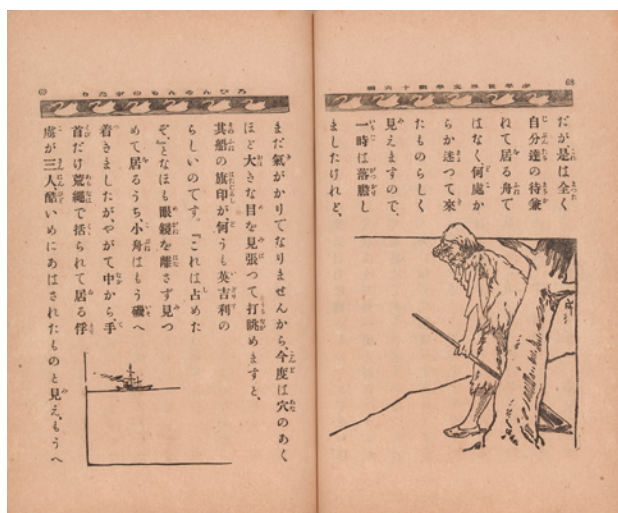 68
だが、是は全く
自分達の待兼
れて居る舟で
はなく、何處か
らか迷つて來
たものらしく
見えますので、
一時は落膽し
ましたけれど、
まだ氣がかりでなりませんから、今度は穴のあく
ほど大きな目を見張つて打眺めますと、
其船の旗印が、何うも英吉利の
らしいのです。『これは占めた
ぞ、』となほも眼鏡を離さず見つ
めて居るうち、小舟はもう磯へ
着きましたが、やがて中から、手
首だけ荒繩で括られて居る俘
虜が三人、酷いめにあはされたものと見え、もうへ